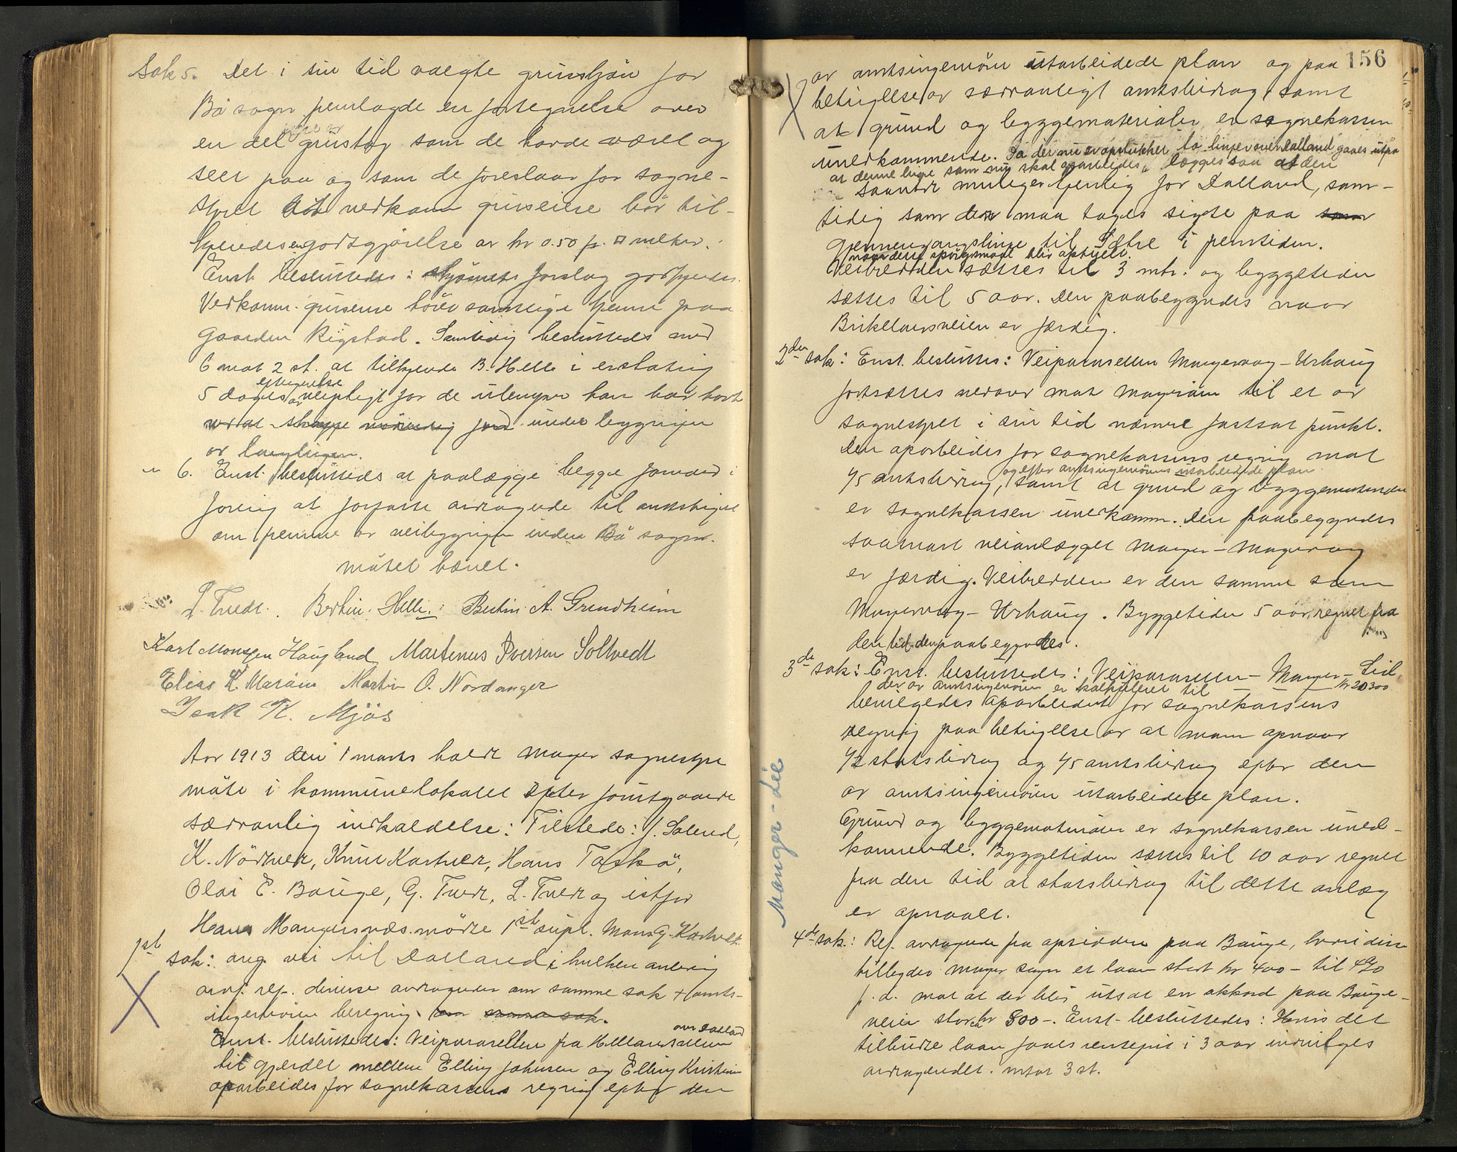 Sak 5. Det i sin tid valgte grusskjøn for
Bø sogn fremlagde en fortegnelse over
en del grustag som de havde været og
seet paa og som de foreslaar for sogne-
styret at vedkom. gruseiere bør til-
kjendes en godtgjørelse av kr 0.50 pr. □ meter.
Enst. besluttedes: skjønnets forslag godkjendes.
Vedkom. gruseiere bøier samtlige henne paa
gaarden Rigstad. Samtidig besluttedes med
6 mot 2 st. at tilkjende B. Helle i erstatning
5 dages eftergivelse av veipligt for de ulemper han har havt
under bygningen
av
" 6. Enst. besluttedes at paalægge begge formænd i
forening at forfatte andragende til amtstinget
om penger av veibygningen inden Bø sogn.
møtet hævet.
L. Tvedt. Bertin Helle. Bertin A. Grindheim
Karl Monssen Haugland Martenus Iversen Soltvedt
Elias L. Marøin Martin O. Nordanger
Isak K. Mjøs
Aar 1913 den 1 marts holdt Manger sognestyre
møte i kommunelokalet efter forutgaaende
sædvanlig indkaldelse: Tilstede: J. Solend,
K. Nördtveit, Knut Kartveit, Hans Toskø,
Olai E. Bauge, G. Tvedt, L. Tvedt og istfor
Hans Mangersnes møtte 1st supl. Mons G. Kartveit.
1ste sak: ang vei til Dalland i hvilken anledning
avs. ref. diverse andragender om samme sak + amts-
ingeniøren beregning om samme sak.
Enst. besluttedes: Veiparsellen fra Hellandsveien over Dalland
til gjerdet mellem Elling Johnsen og Elling Kristian
oparbeides for sognekassens regning efter den
156
av amtsingeniøren utarbeidede plan og paa
betingelse av sædvanligt amtsbidrag samt
at grund og byggematerialer er sognekassen
uvedkommende. Da der nu er opstukket to linjer over Dalland gaaes utfra
at denne linje som nu skal oparbeides, lægges saa at den
saavidt mulig er heldig for Dalland, sam-
tidig som der maa tages sigte paa som
gjennemgangslinje til Sætre i fremtiden.
naar dette spørgsmaal blir aktuelt.
Veibredden sættes til 3 mtr. og byggetiden
sættes til 5 aar. Den paabegyndes naar
Birkelandsveien er færdig.
2den sak: Enst. besluttes: Veiparsellen Mangervaag - Urhaug
fortsættes nedover mot Marøin til et av
sognestyret i sin tid nærmere fastsat punkt.
Den oparbeides for sognekassens regning mot
1/5 amtsbidrag, og efter amtsingeniørens utarbeidede plan
samt at grund og byggematerialer
er sognekassen uvedkomm. Den paabegyndes
saasnart veianlægget Manger - Mangervaag
er færdig. Veibredden er den samme som
Mangervaag - Urhaug. Byggetiden 5 aar, regnet fra
den tid den paabegyndes.
3de sak: Enst. besluttedes: Veiparsellen - Manger - Lid
der av amtsingeniøren er kalkuleret til kr 20300
bevilgedes oparbeidet for sognekassens
regning paa betingelse av at man opnaar
1/2 statsbidrag og 1/5 amtsbidrag efter den
av amtsingeniøren utarbeidede plan.
Grund og byggematerialer er sognekassen uved-
kommende. Byggetiden sættes til 10 aar regnet
fra den tid at statsbidrag til dette anlæg
er opnaadt.
Manger - Lie
4de sak: Ref. andragende fra opsidderne paa Bauge, hvori disse
tilbyder Manger sogn et laan stort kr 400 - til 4%
p. a. mot at der blir utsat en akkord paa Bauge-
veien stor kr 800 -. Enst. besluttedes: Hvis det
tilbudte laan faaes rentefrit i 3 aar indvilges
andragendet. mot 3 st.